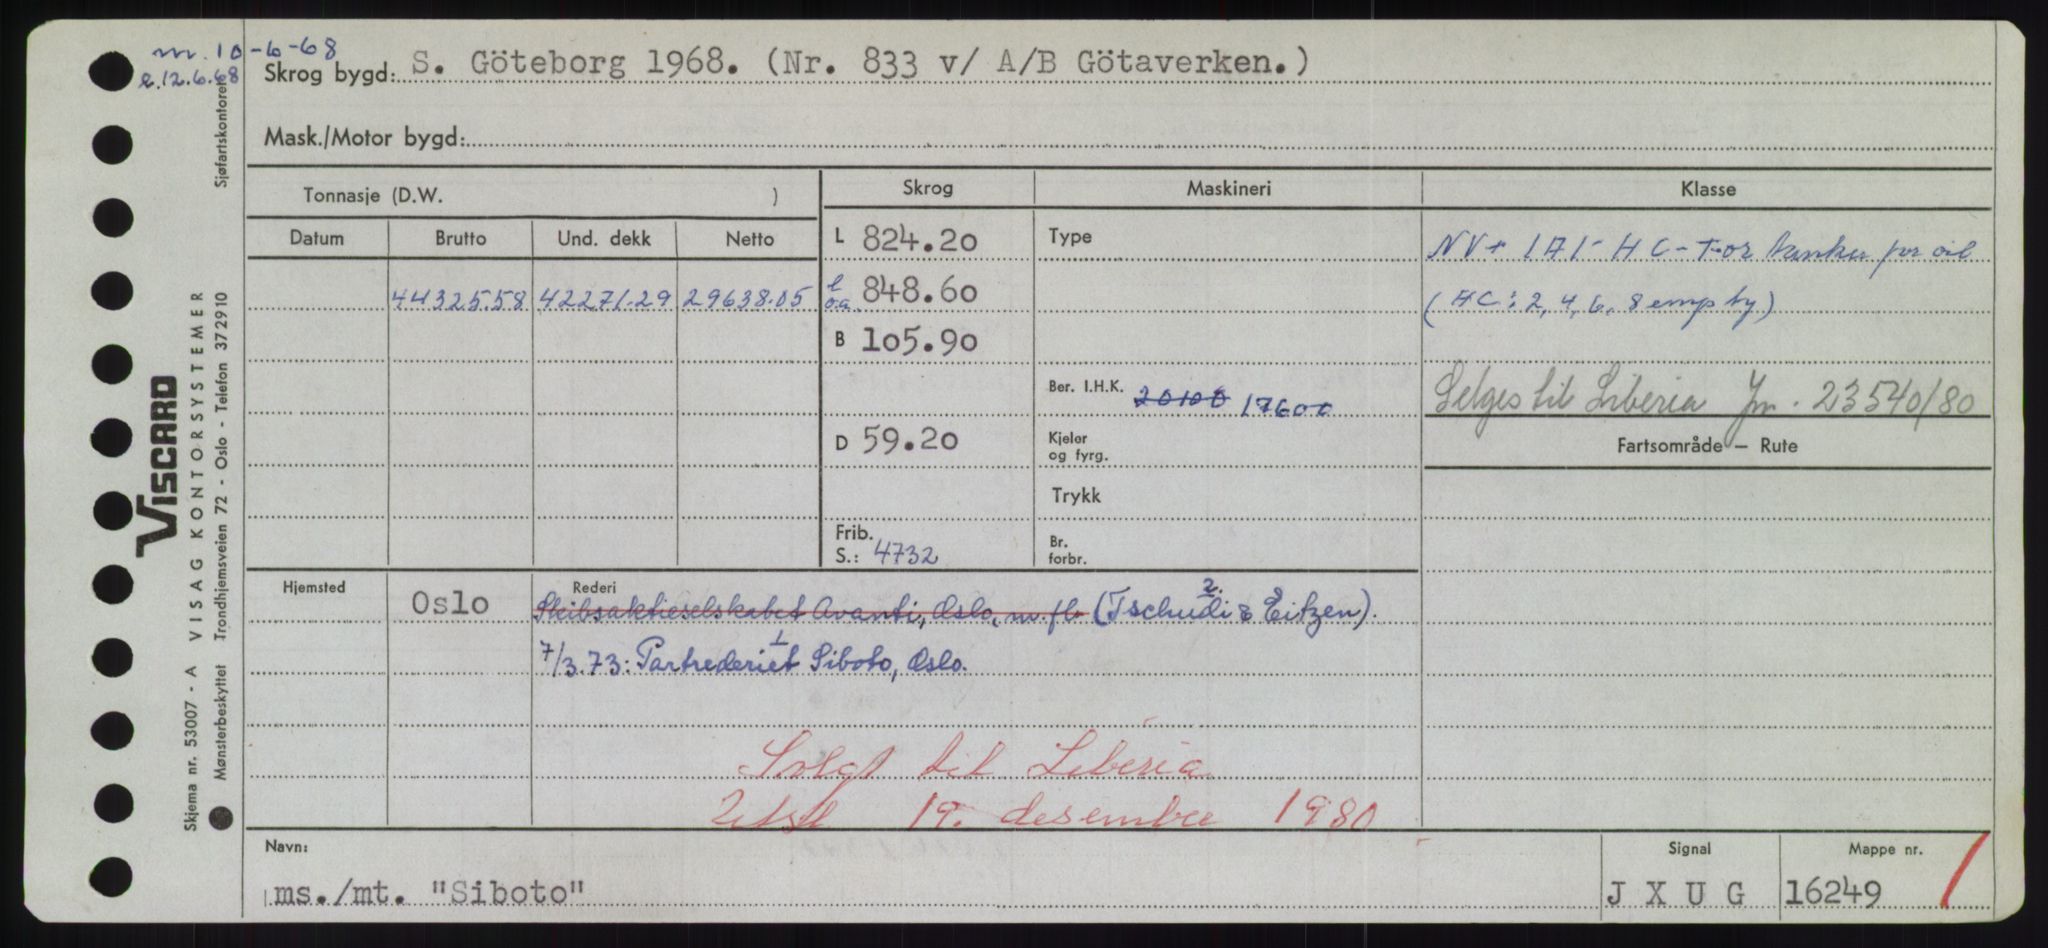 m. 10-6-68
e. 12.6.68
Skrog bygd: S. Göteborg 1968. (Nr. 833 v/ A/B Götaverken.)
Mask./Motor bygd:
Tonnasje (D.W. )
Datum Brutto Und. dekk Netto
44325.58 42271.29 29638.05
Skrog
L 824.20
l o.a. 848.60
B 105.90
D 59.20
Frib.
S.: 4732
Maskineri
Type
Ber. I.H.K. 20100 17600
Kjeler
og fyrg.
Trykk
Br.
forbr.
Klasse
NV+ 1A1- HC-T-or tanker for oil
(HC: 2, 4, 6, 8 empty)
Selges til Liberia Jnr. 23540/80
Fartsområde — Rute
Hjemsted Oslo
Rederi
Skibsaktieselskabet Avanti, Oslo, m.fl. (Tschudi & Eitzen).
2.
7/3.73: Partrederiet Siboto, Oslo.
1
Solgt til Liberia
19. desember 1980
Navn:
ms./mt. "Siboto"
Signal
J X U G
Mappe nr.
16249
Sjøfartskontoret
VISCARD
VISAG KONTORSYSTEMER
Skjema nr. 53007 - A
Mønsterbeskyttet Trondhjemsveien 72 - Oslo - Telefon 372910